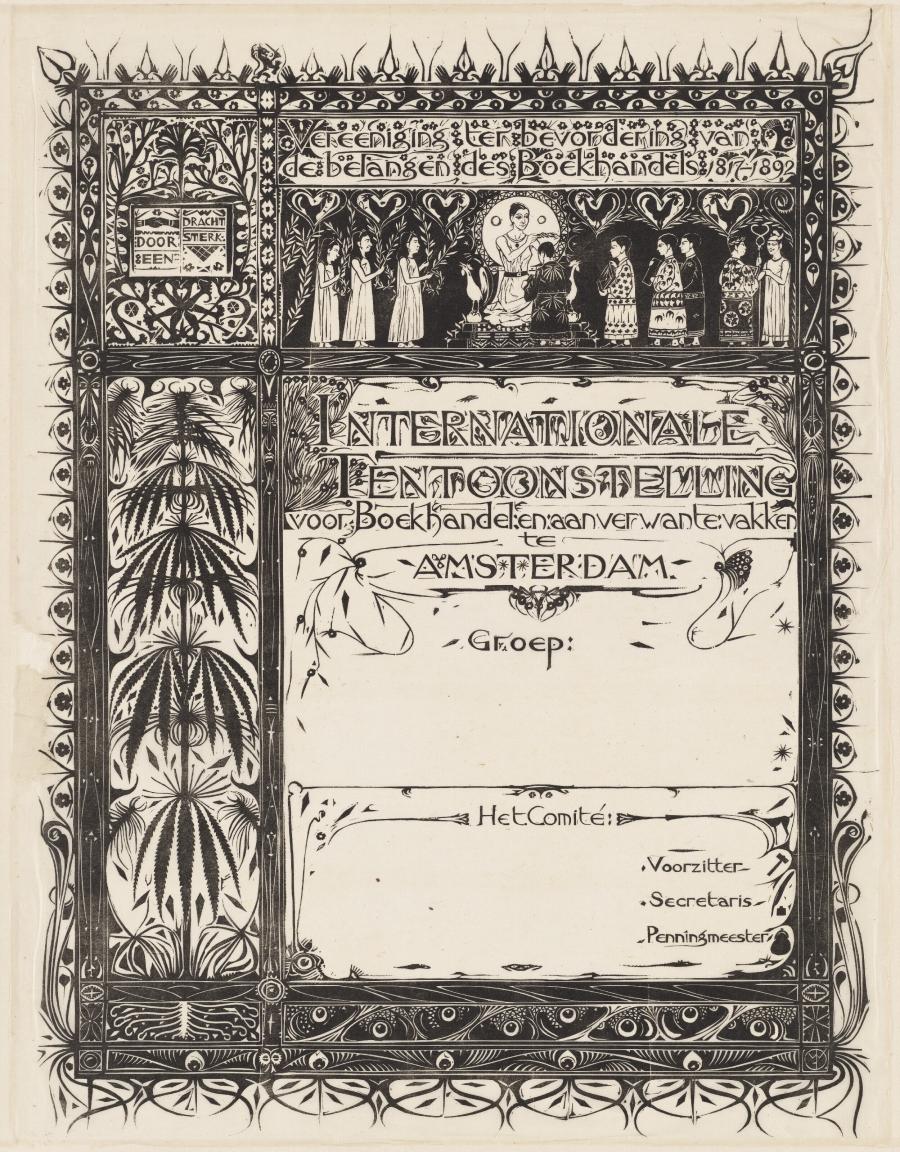 Vereeniging ter bevordering van
de belangen des Boekhandels 1817-1892
DOOR
EEN
DRACHT
STERK
INTERNATIONALE
TENTOONSTELLING
voor Boekhandel: en: aanverwante: vakken
te
AMSTERDAM.
Groep:
Het Comité:
Voorzitter
Secretaris
Penningmeester